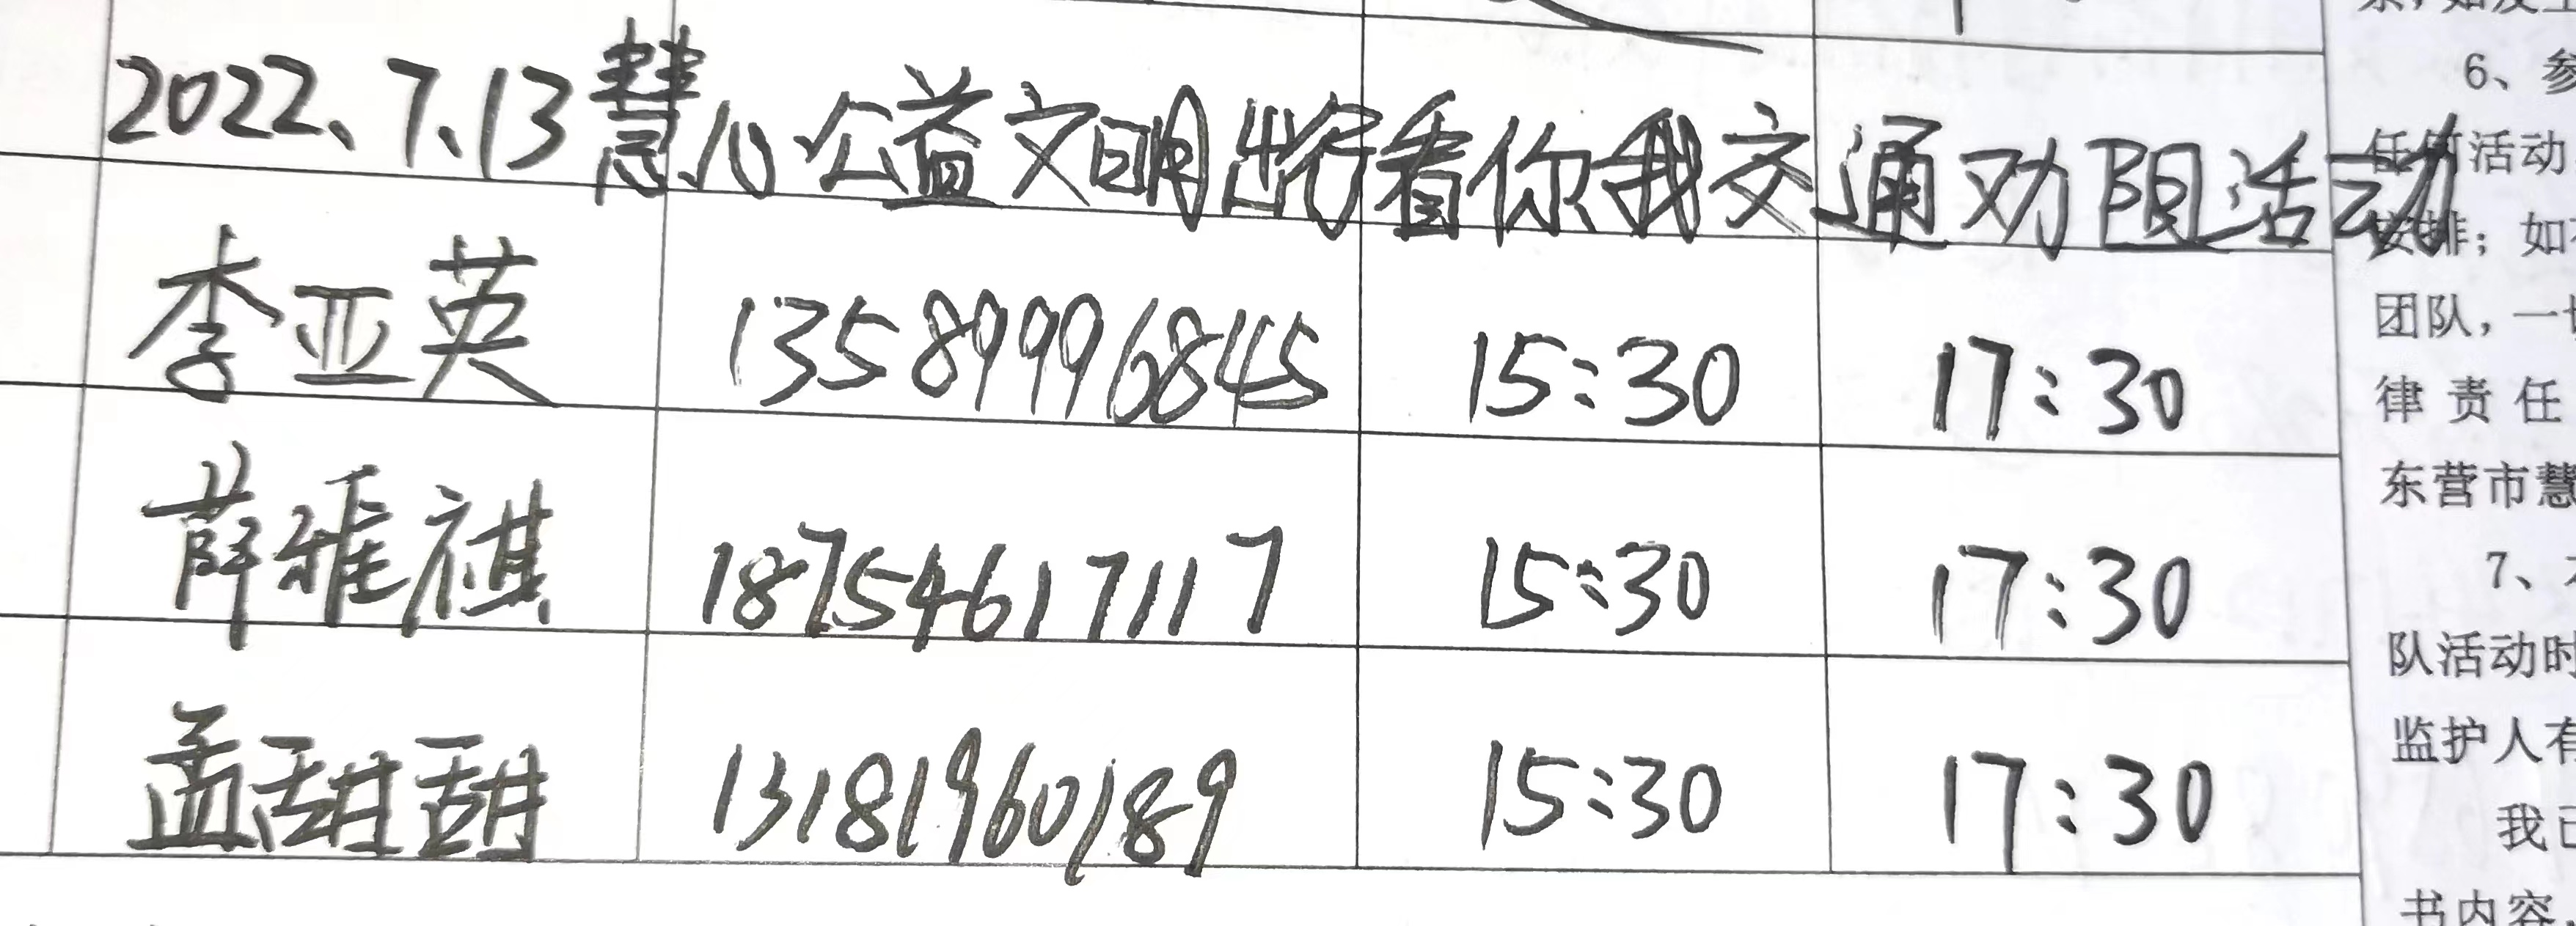 2022、7、13慧心公益文明出行看你我交通劝阻活动
李亚英 13589996845 15:30 17:30
薛雅祺 18754617117 15:30 17:30
孟甜甜 13181960189 15:30 17:30
6、参
任何活动
安排；如
团队，一
律责任
东营市慧
7、
队活动时
监护人有
我已
书内容，